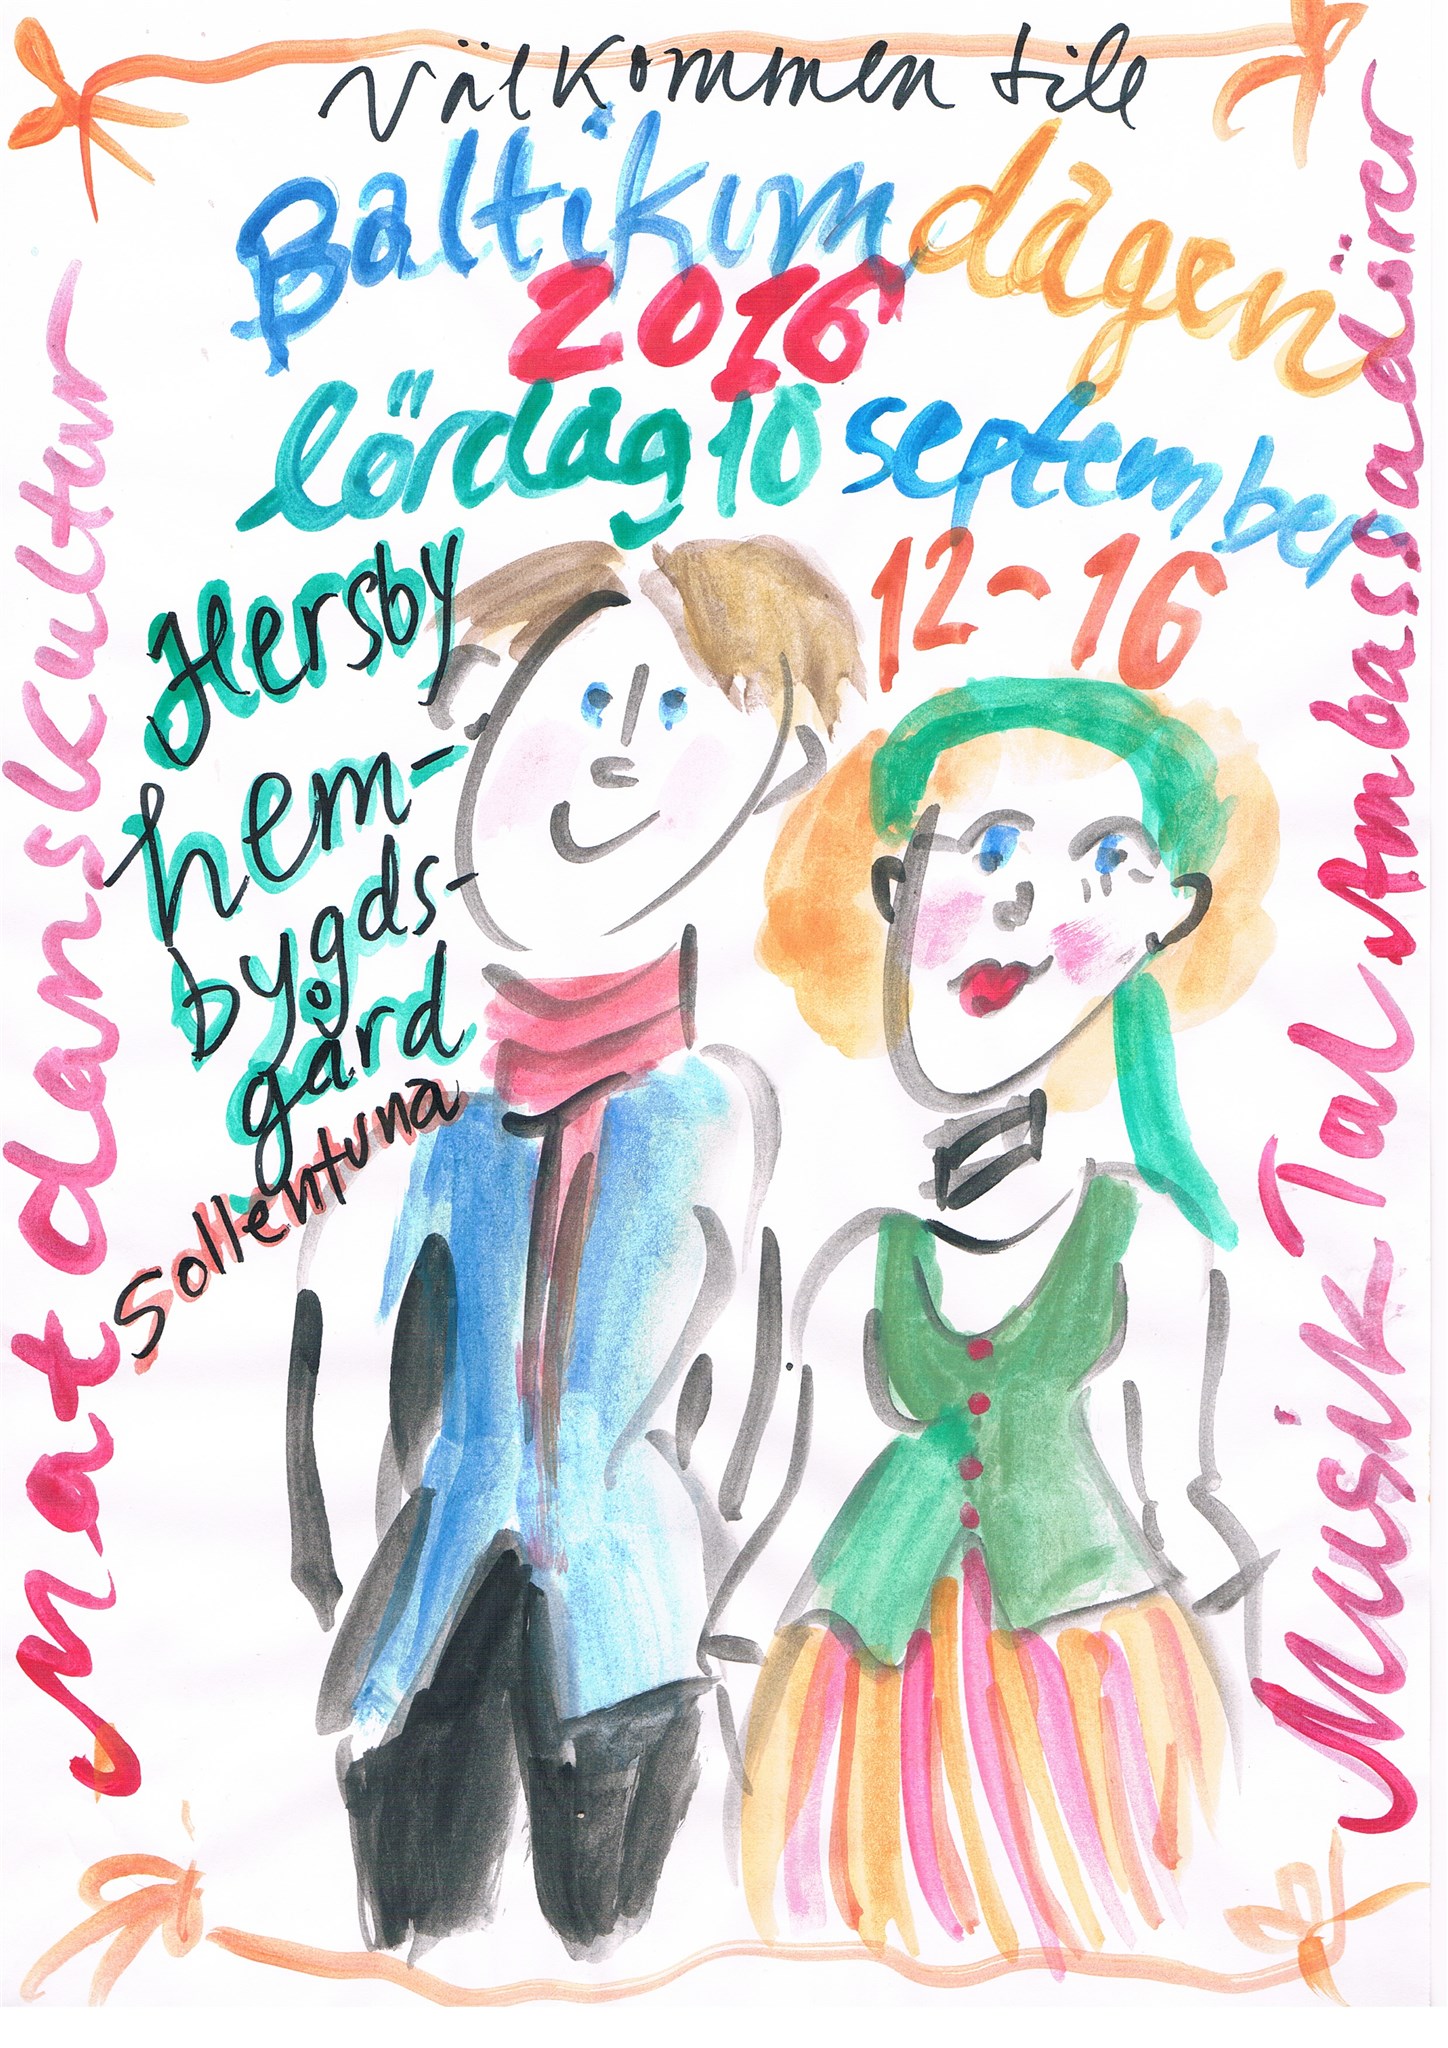 Välkommen till
Baltikumdagen
2016
lördag 10 september
12-16
Hersby
hem-
bygds-
gård
Sollentuna
Mat dans kultur
Musik Tal Ambassadörer